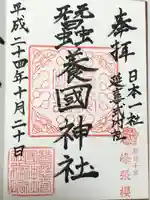 奉拝
日本一社
延喜式内社
峰張櫻
蠶養國神社
平成二十四年十月二十日